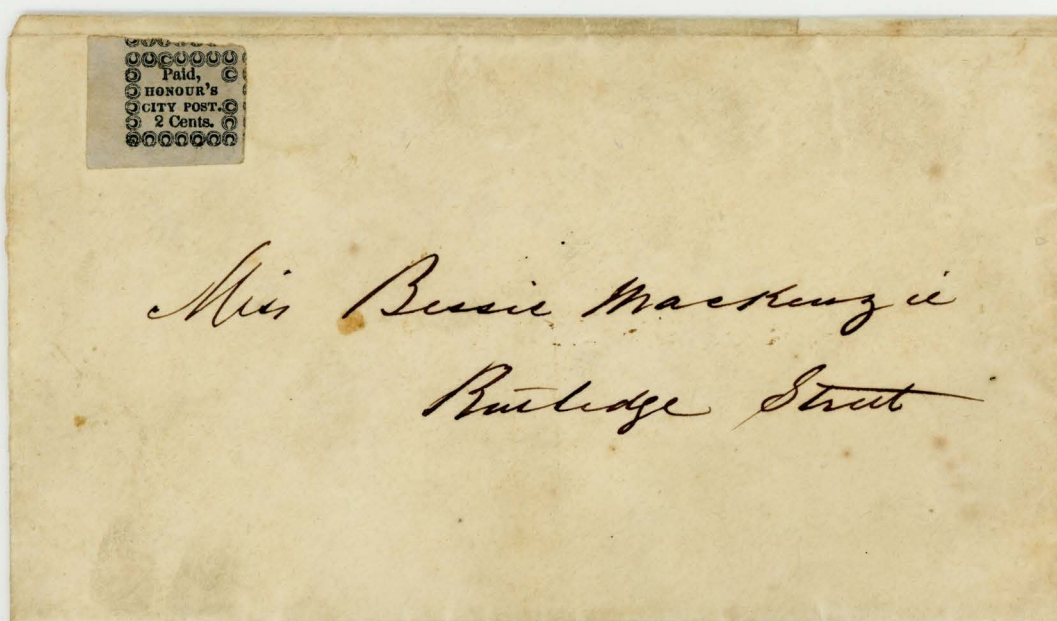 Paid,
HONOUR'S
CITY POST.
2 Cents.
Miss Bessie Mackenzie
Rutledge Street